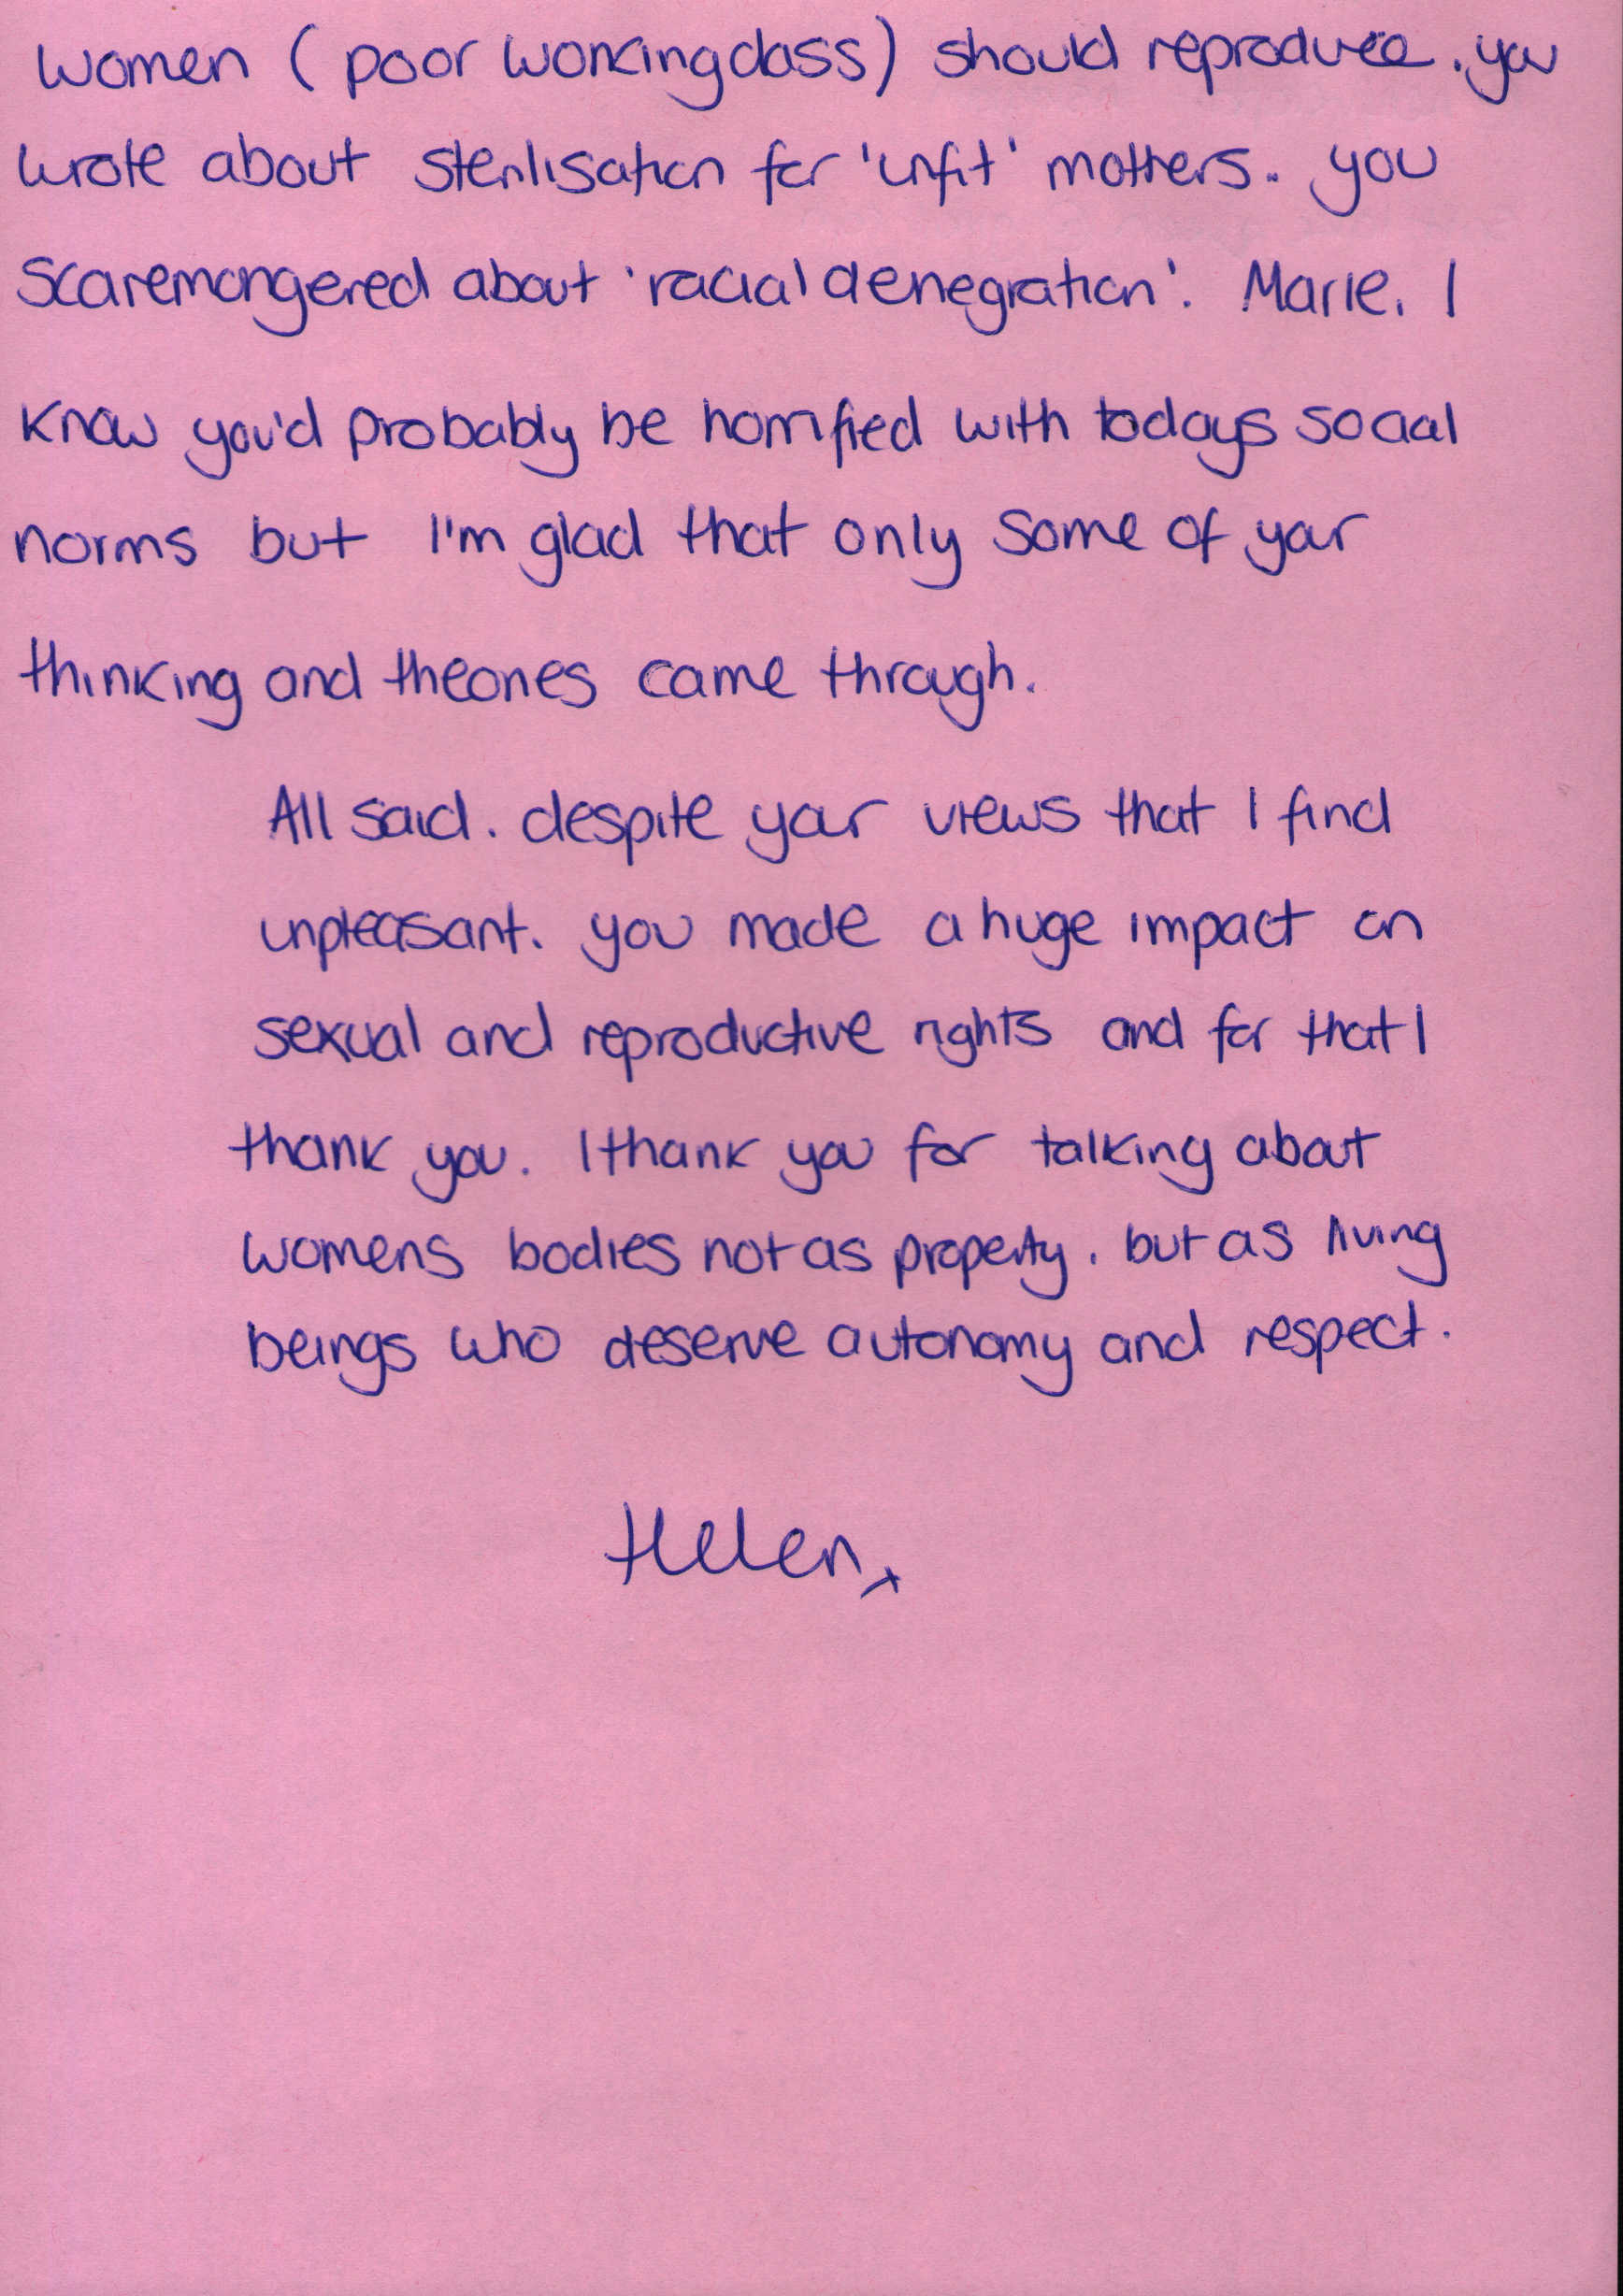 women (poor working class) should reproduce. you
wrote about sterilisation for 'unfit' mothers. you
scaremongered about 'racial denegration'. Marie, I
know you'd probably be horrified with todays social
norms but I'm glad that only some of your
thinking and theories came through.
All said. despite your views that I find
unpleasant. you made a huge impact on
sexual and reproductive rights and for that I
thank you. I thank you for talking about
womens bodies not as property. but as living
beings who deserve autonomy and respect.
Helen x